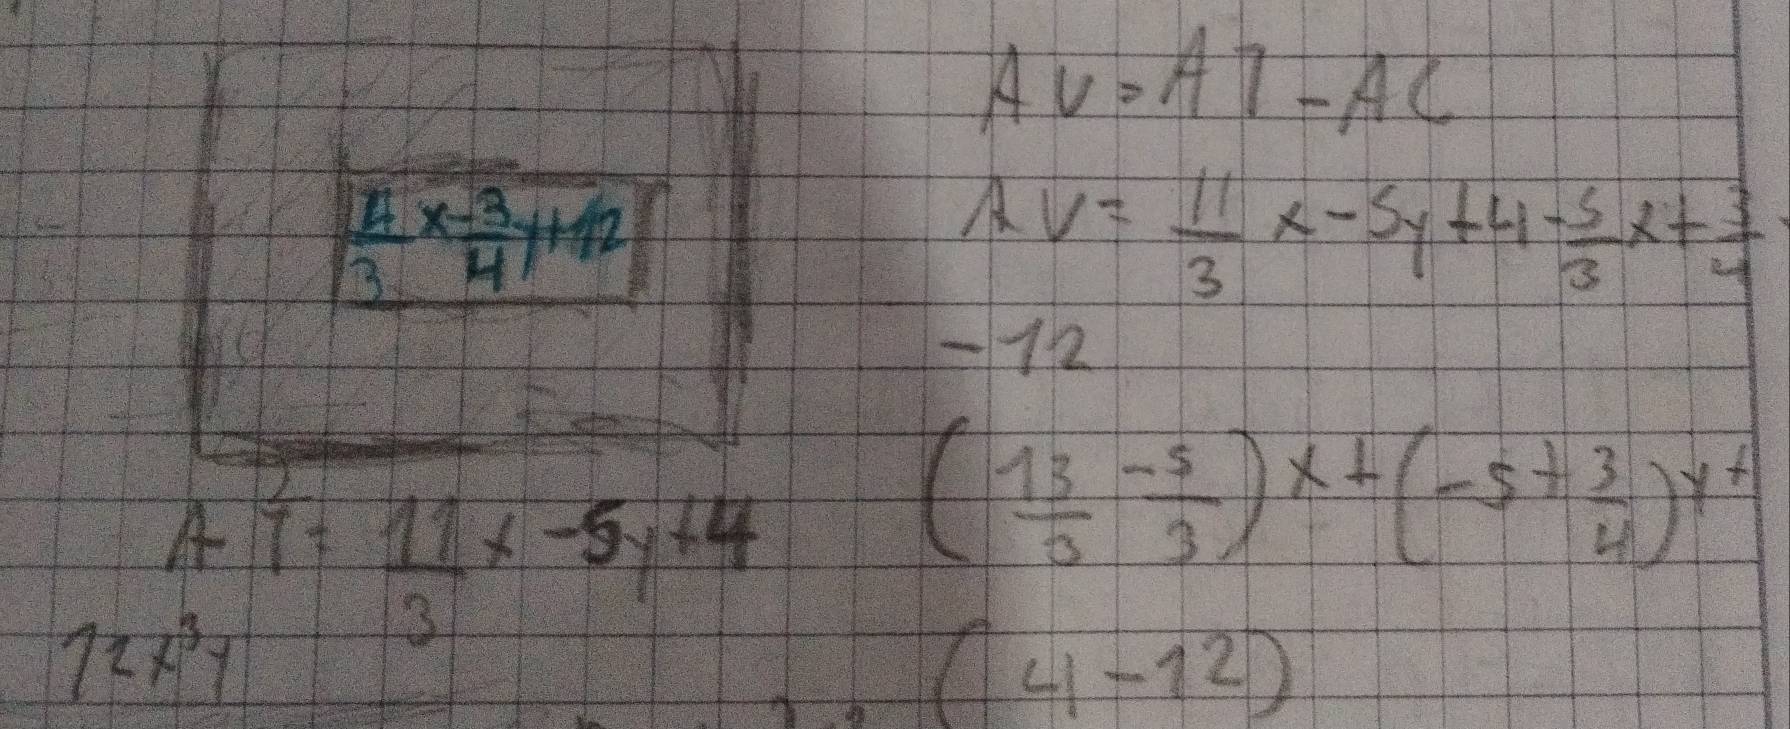 4/3 x - 3/4 y + 12
AT = 11/3 x - 5y + 4
12x³y
AV = AT - AC
AV = 11/3 x - 5y + 4 - 5/3 x + 3/4
-12
(13/3 - 5/3) x + (-5 + 3/4) y +
(4 - 12)